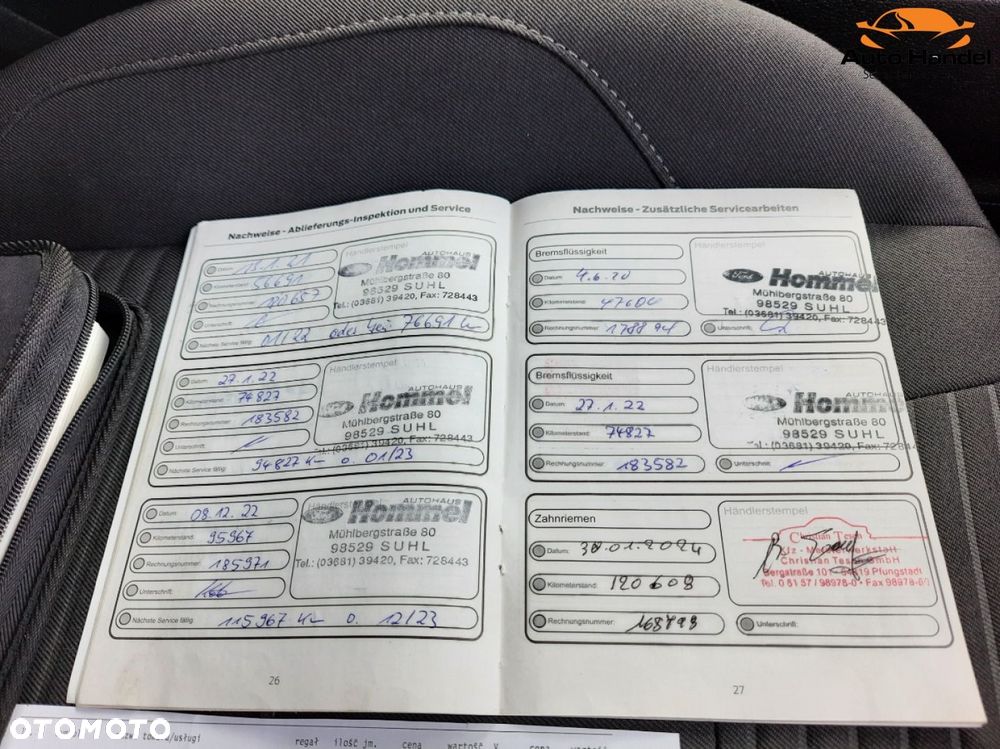 Auto Handel
Nachweise - Ablieferungs-Inspektion und Service
Datum: 18.1.21
Kilometerstand: 56691
Rechnungsnummer: 180657
Unterschrift:
Nächste Service fällig: 01/22 oder 76691
Händlerstempel
AUTOHAUS
Hommel
Mühlbergstraße 80
98529 SUHL
Tel.: (03681) 39420, Fax: 728443
Datum: 27.1.22
Kilometerstand: 74827
Rechnungsnummer: 183582
Unterschrift:
Nächste Service fällig: 94827 km o. 01/23
Händlerstempel
AUTOHAUS
Hommel
Mühlbergstraße 80
98529 SUHL
Tel.: (03681) 39420, Fax: 728443
Datum: 08.12.22
Kilometerstand: 95967
Rechnungsnummer: 185971
Unterschrift:
Nächste Service fällig: 115967 km o. 12/23
Händlerstempel
AUTOHAUS
Hommel
Mühlbergstraße 80
98529 SUHL
Tel.: (03681) 39420, Fax: 728443
26
Nachweise - Zusätzliche Servicearbeiten
Bremsflüssigkeit
Datum: 4.6.20
Kilometerstand: 47600
Rechnungsnummer: 178894
Unterschrift:
Händlerstempel
Ford
AUTOHAUS
Hommel
Mühlbergstraße 80
98529 SUHL
Tel.: (03681) 39420, Fax: 728443
Bremsflüssigkeit
Datum: 27.1.22
Kilometerstand: 74827
Rechnungsnummer: 183582
Unterschrift:
Händlerstempel
AUTOHAUS
Hommel
Mühlbergstraße 80
98529 SUHL
Tel.: (03681) 39420, Fax: 728443
Zahnriemen
Datum: 30.01.2024
Kilometerstand: 120608
Rechnungsnummer: 168799
Unterschrift:
Händlerstempel
Christian
Christian GmbH
Bergstraße 101 Pfungstadt
Tel. 0 61 57 / 98978-0 - Fax 98978-60
27
OTOMOTO
towaru/usługi
regał ilość jm. cena wartość cena wartość